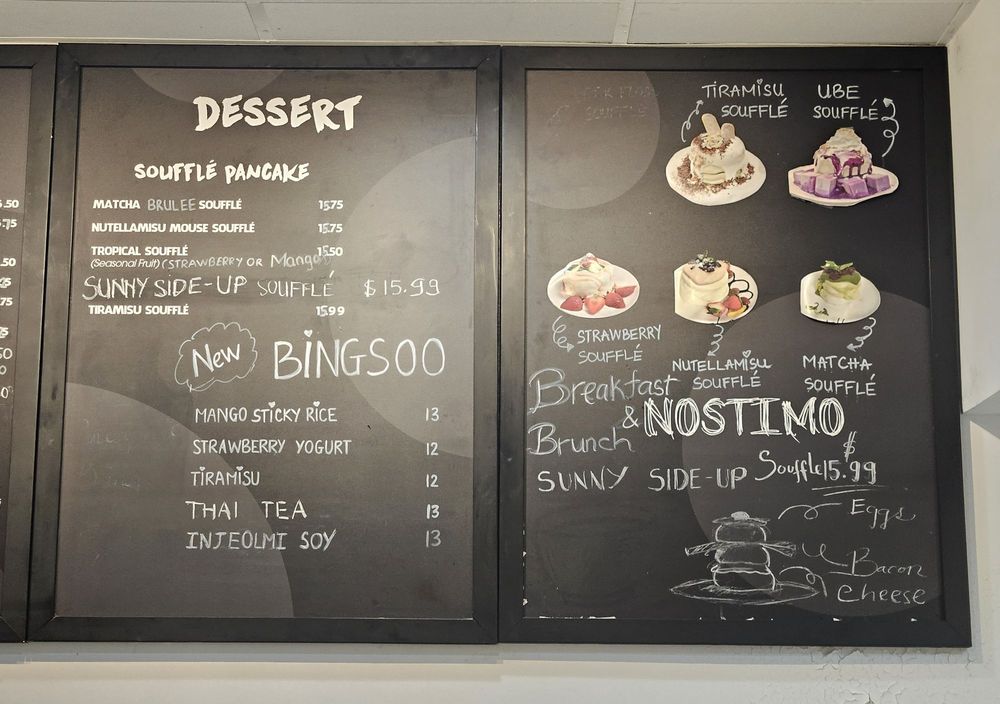 5.50
.75
.50
75
75
DESSERT
SOUFFLÉ PANCAKE
MATCHA BRULEE SOUFFLÉ 15.75
NUTELLAMISU MOUSE SOUFFLÉ 15.75
TROPICAL SOUFFLÉ 15.50
(Seasonal Fruit) (STRAWBERRY OR Mango)
SUNNY SIDE-UP SOUFFLÉ $15.99
TIRAMISU SOUFFLÉ 15.99
New BINGSOO
MANGO STICKY RICE 13
STRAWBERRY YOGURT 12
TIRAMISU 12
THAI TEA 13
INJEOLMI SOY 13
TIRAMISU SOUFFLÉ
UBE SOUFFLÉ
STRAWBERRY
SOUFFLÉ
NUTELLAMISU
SOUFFLÉ
MATCHA
SOUFFLÉ
Breakfast
& NOSTIMO
Brunch
SUNNY SIDE-UP Souffle $15.99
Eggs
Bacon
cheese